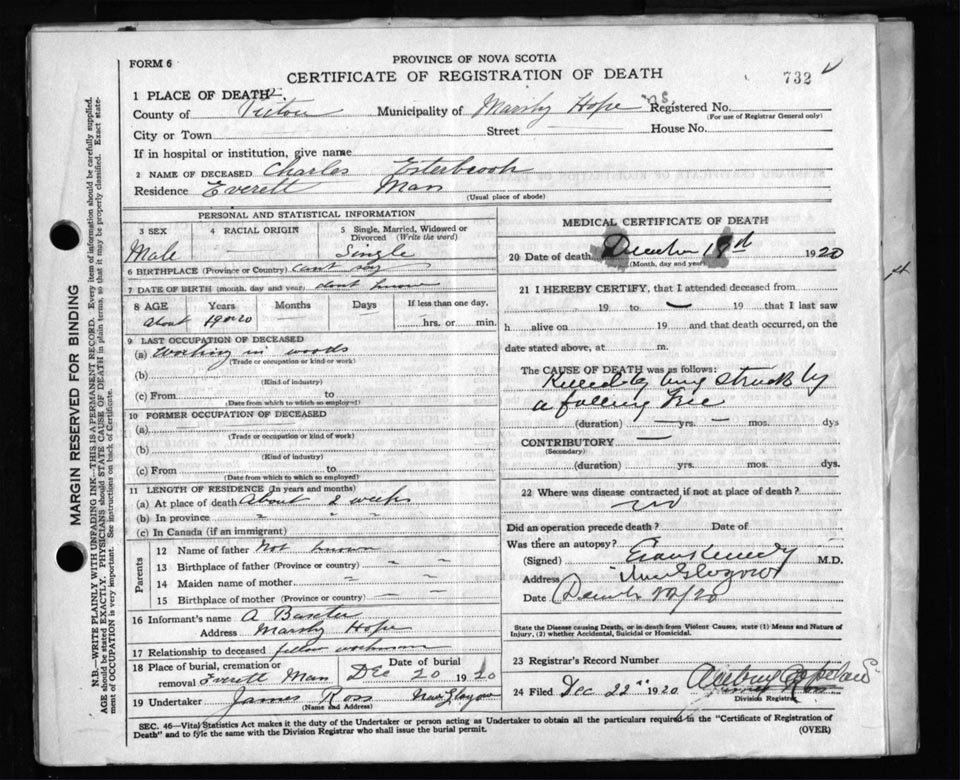 FORM 6
PROVINCE OF NOVA SCOTIA
CERTIFICATE OF REGISTRATION OF DEATH
732
1 PLACE OF DEATH
County of Pictou Municipality of Marshy Hope N.S. Registered No.
(For use of Registrar General only)
City or Town Street House No.
If in hospital or institution, give name
2 NAME OF DECEASED Charles Esterbrook
Residence Everett Mass
(Usual place of abode)
PERSONAL AND STATISTICAL INFORMATION
3 SEX
Male
4 RACIAL ORIGIN
—
5 Single, Married, Widowed or Divorced (Write the word)
Single
6 BIRTHPLACE (Province or Country) cant say
7 DATE OF BIRTH (month, day and year) dont know
8 AGE Years Months Days If less than one day,
About 19 or 20 — hrs. or min.
9 LAST OCCUPATION OF DECEASED
(a) Working in woods
(Trade or occupation or kind or work)
(b)
(Kind of industry)
(c) From to
(Date from which to which so employed)
10 FORMER OCCUPATION OF DECEASED
(a) —
(Trade or occupation or kind of work)
(b)
(Kind of industry)
(c) From to
(Date from which to which so employed)
11 LENGTH OF RESIDENCE (In years and months)
(a) At place of death About 2 weeks
(b) In province " " "
(c) In Canada (if an immigrant)
Parents
12 Name of father Not known
13 Birthplace of father (Province or country) " "
14 Maiden name of mother " "
15 Birthplace of mother (Province or country) —
16 Informant's name A Baxter
Address Marshy Hope
17 Relationship to deceased fellow workman
18 Place of burial, cremation or removal Everett Mass
Date of burial
Dec 20 1920
19 Undertaker James Ross New Glasgow
(Name and Address)
MEDICAL CERTIFICATE OF DEATH
20 Date of death December 1920
(Month, day and year)
21 I HEREBY CERTIFY, that I attended deceased from
19 to — 19 that I last saw
h alive on 19 and that death occurred, on the
date stated above, at m.
The CAUSE OF DEATH was as follows:
Killed by being struck by
a falling tree
(duration) — yrs. — mos. dys
CONTRIBUTORY —
(Secondary)
(duration) yrs. mos. dys.
22 Where was disease contracted if not at place of death?
no
Did an operation precede death? Date of
Was there an autopsy?
(Signed) Evan Kennedy M.D.
Address New Glasgow
Date
State the Disease causing Death, or in death from Violent Causes, state (1) Means and Nature of
Injury, (2) whether Accidental, Suicidal or Homicidal.
23 Registrar's Record Number
24 Filed Dec 22 1920
Division Registrar
SEC. 46—Vital Statistics Act makes it the duty of the Undertaker or person acting as Undertaker to obtain all the particulars required in the "Certificate of Registration of
Death" and to fyle the same with the Division Registrar who shall issue the burial permit.
(OVER)
MARGIN RESERVED FOR BINDING
N.B.—WRITE PLAINLY WITH UNFADING INK—THIS IS A PERMANENT RECORD. Every item of information should be carefully supplied.
AGE should be stated EXACTLY. PHYSICIANS should STATE CAUSE OF DEATH in plain terms, so that it may be properly classified. Exact state-
ment of OCCUPATION is very important. See instructions on back of Certificate.